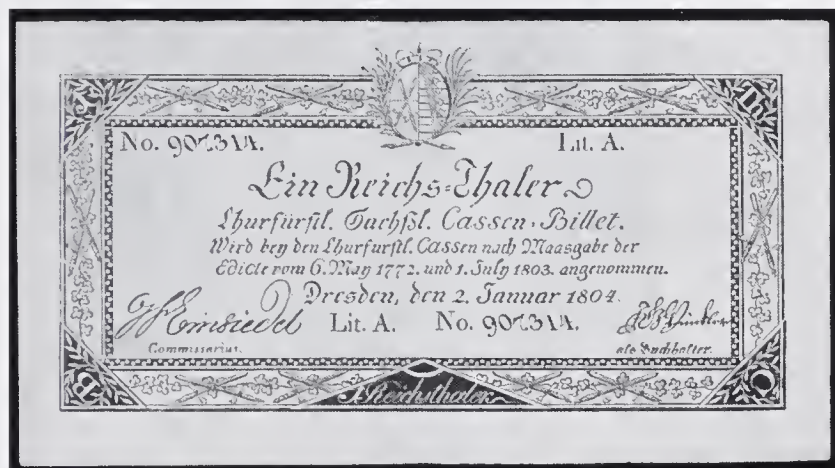 No. 907.314. Lit. A.
Ein Reichs-Thaler
Churfürstl. Sachßl. Cassen-Billet.
Wird bey den Churfürstl. Cassen nach Maasgabe der
Edicte vom 6. May 1772. und 1. July 1803. angenommen.
Dresden, den 2. Januar 1804.
Einsiedel Lit. A. No. 907.314. Winkler
Commissarius. als Buchhalter.
1 Reichsthaler